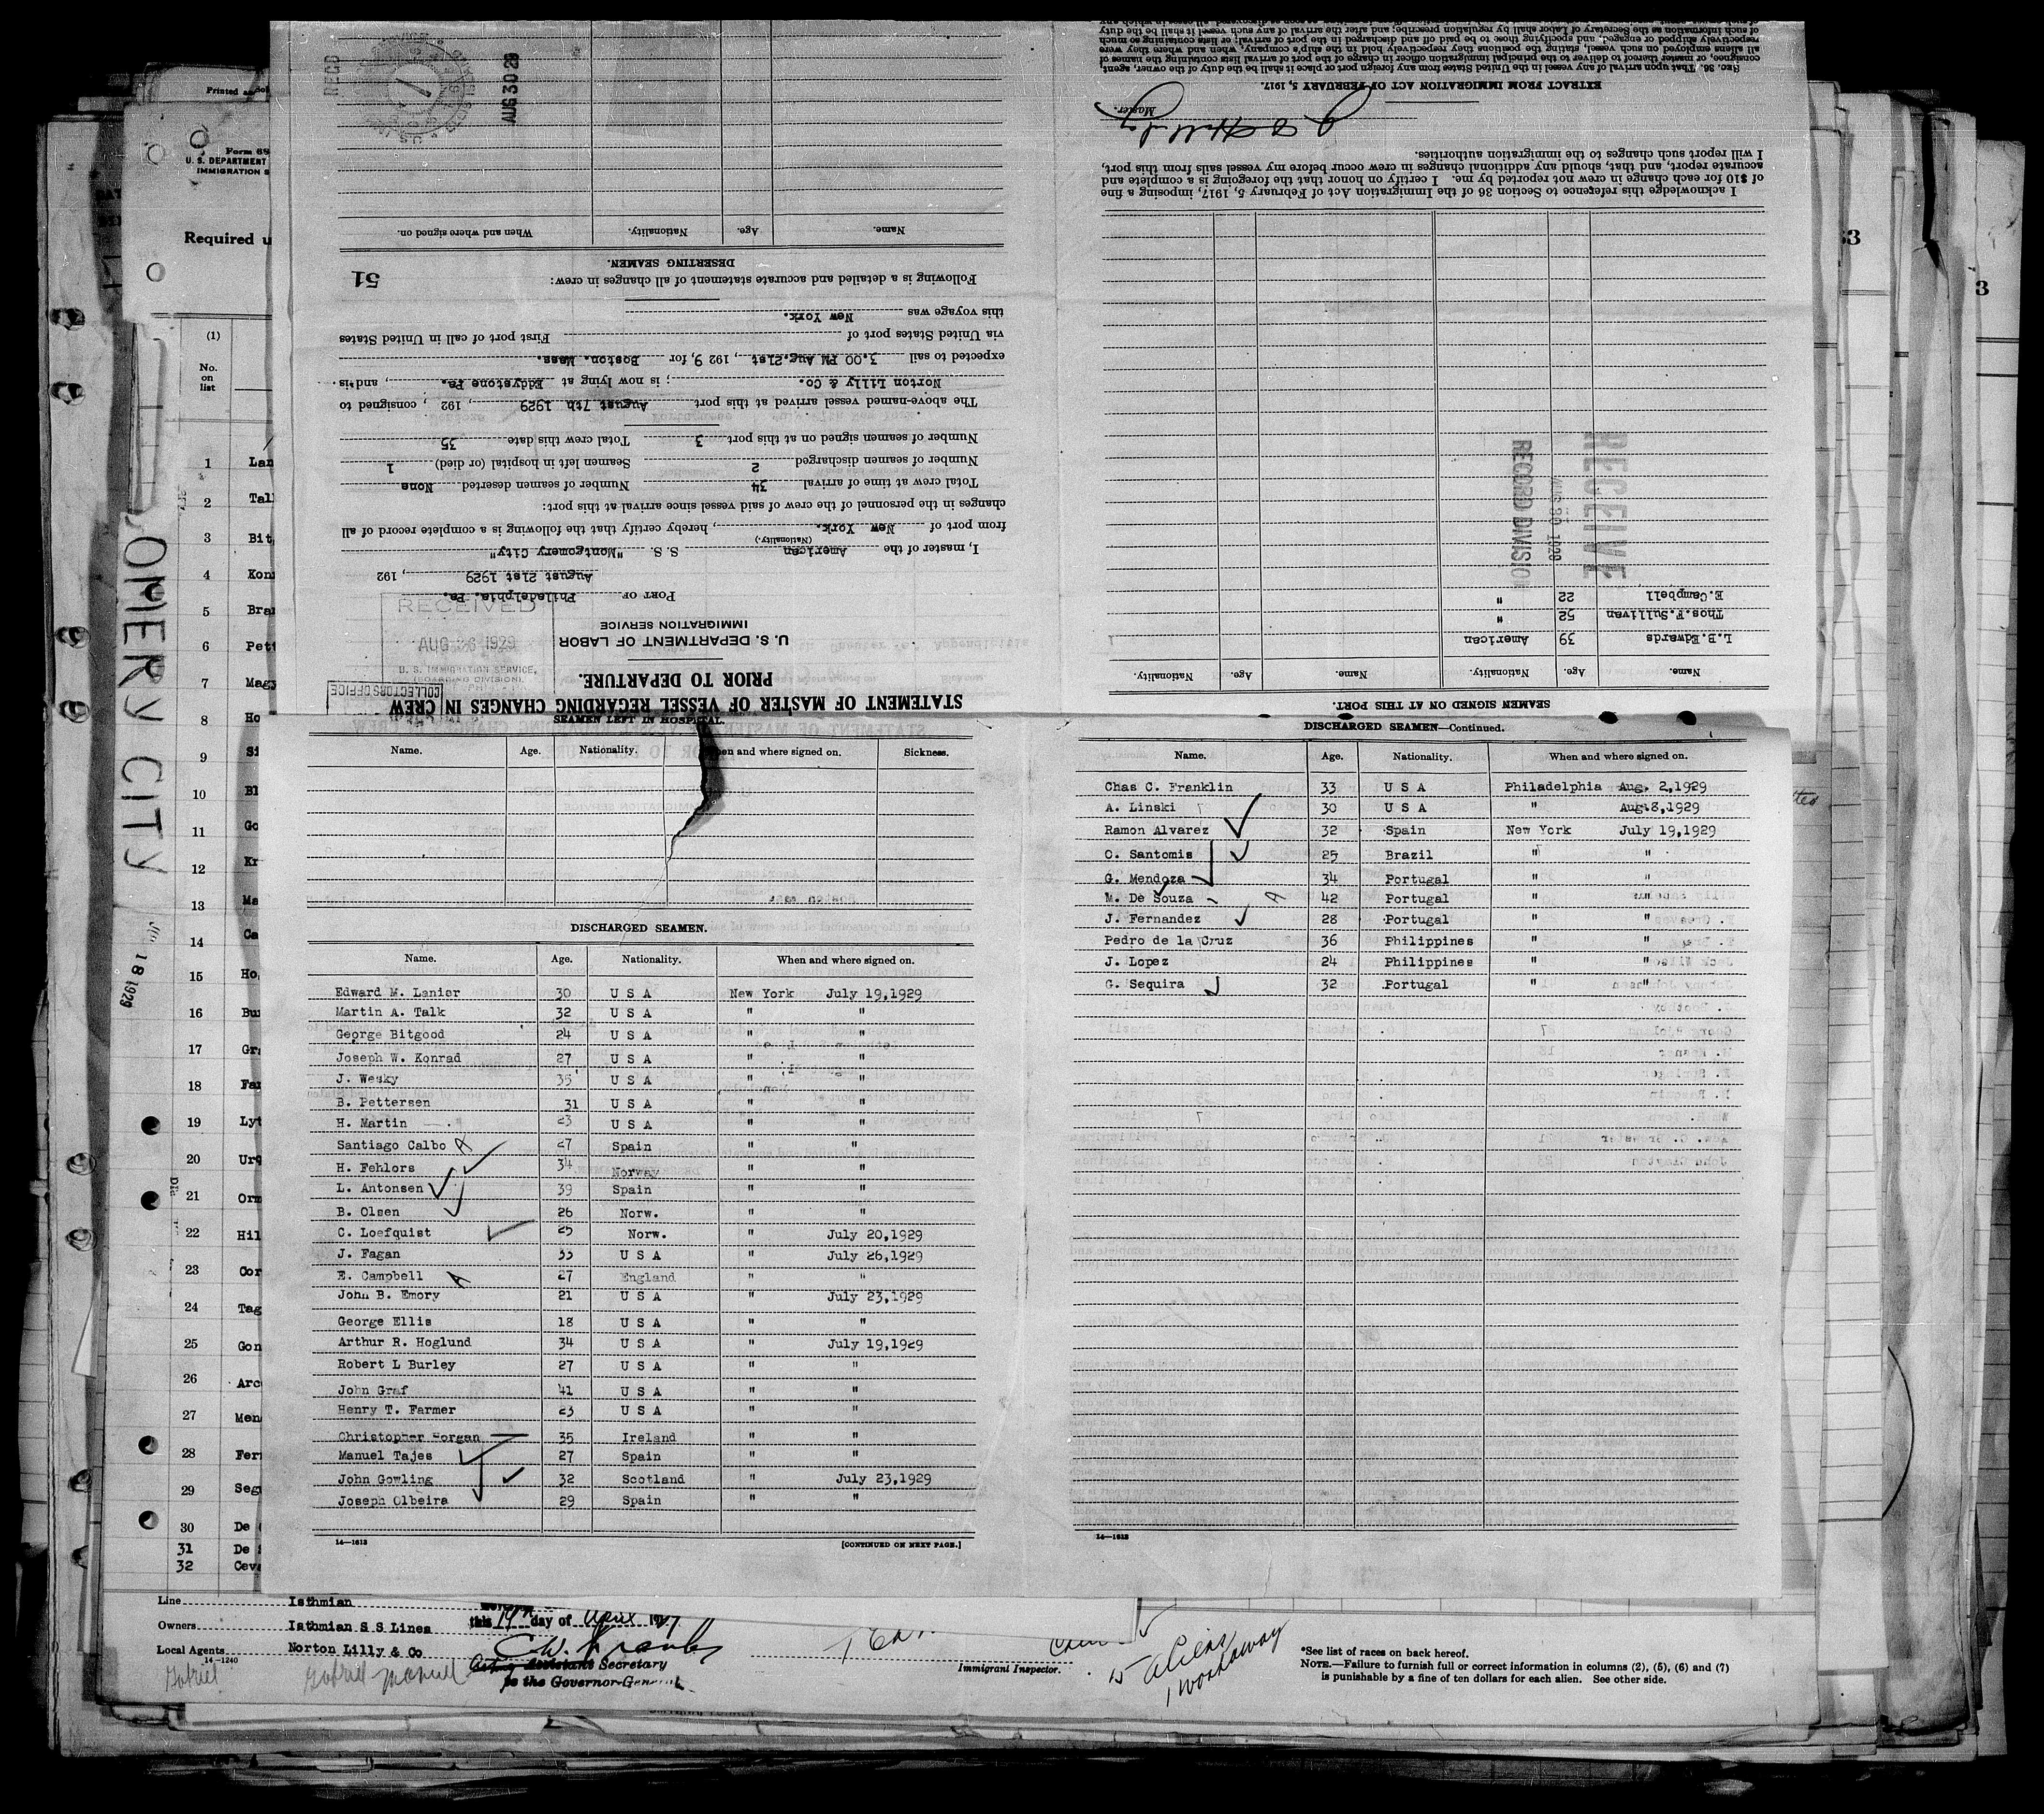 STATEMENT OF MASTER OF VESSEL REGARDING CHANGES IN CREW
PRIOR TO DEPARTURE.
U. S. DEPARTMENT OF LABOR
IMMIGRATION SERVICE
COLLECTORS OFFICE
RECEIVED
AUG 26 1929
U. S. IMMIGRATION SERVICE,
PORT OF Philadelphia. Pa.
August 21st 1929, 192
I, master of the American S. S. "Montgomery City"
(Nationality.)
from port of New York., hereby certify that the following is a complete record of all
changes in the personnel of the crew of said vessel since arrival at this port:
Total crew at time of arrival 34 Number of seamen deserted None
Number of seamen discharged 2 Seamen left in hospital (or died) 1
Number of seamen signed on at this port 3 Total crew this date 35
The above-named vessel arrived at this port August 7th 1929, 192 , consigned to
Norton Lilly & Co. ; is now lying at Eddystone Pa. , and is
expected to sail 3.00 PM Aug.21st, 192 9, for Boston. Mass.
via United States port of First port of call in United States
this voyage was New York.
Following is a detailed and accurate statement of all changes in crew: 51
DESERTING SEAMEN.
Name. Age. Nationality. When and where signed on.
AUG 30 29
REC'D
SEAMEN SIGNED ON AT THIS PORT.
Name. Age. Nationality. Name. Age. Nationality.
L.B.Edwards 39 American
Thos.F.Sullivan 52 "
E.Campbell 22 "
RECEIVE
AUG 30 1929
RECORD DIVISION
I acknowledge this reference to Section 36 of the Immigration Act of February 5, 1917, imposing a fine
of $10 for each change in crew not reported by me. I certify on honor that the foregoing is a complete and
accurate report, and that, should any additional changes in crew occur before my vessel sails from this port,
I will report such changes to the immigration authorities.
Master.
EXTRACT FROM IMMIGRATION ACT OF FEBRUARY 5, 1917.
SEC. 36. That upon arrival of any vessel in the United States from any foreign port or place it shall be the duty of the owner, agent,
consignee, or master thereof to deliver to the principal immigration officer in charge of the port of arrival lists containing the names of
all aliens employed on such vessel, stating the positions they respectively hold in the ship's company, when and where they were
respectively shipped or engaged, and specifying those to be paid off and discharged in the port of arrival; or lists containing so much
of such information as the Secretary of Labor shall by regulation prescribe; and after the arrival of any such vessel it shall be the duty
SEAMEN LEFT IN HOSPITAL.
Name. Age. Nationality. When and where signed on. Sickness.
DISCHARGED SEAMEN.
Name. Age. Nationality. When and where signed on.
Edward M. Lanier 30 U S A New York July 19,1929
Martin A. Talk 32 U S A " "
George Bitgood 24 U S A " "
Joseph W. Konrad 27 U S A " "
J. Wesky 35 U S A " "
B. Pettersen 31 U S A " "
H. Martin 23 U S A " "
Santiago Calbo A 27 Spain " "
H. Fehlors 34 Norway " "
L. Antonsen 39 Spain " "
B. Olsen 26 Norw. " "
C. Loefquist 25 Norw. " July 20,1929
J. Fagan 33 U S A " July 26,1929
E. Campbell A 27 England " "
John B. Emory 21 U S A " July 23,1929
George Ellis 18 U S A " "
Arthur R. Hoglund 34 U S A " July 19,1929
Robert L Burley 27 U S A " "
John Graf 41 U S A " "
Henry T. Farmer 23 U S A " "
Christopher Horgan 35 Ireland " "
Manuel Tajes 27 Spain " "
John Gowling 32 Scotland " July 23,1929
Joseph Olbeira 29 Spain " "
14—1613
[CONTINUED ON NEXT PAGE.]
DISCHARGED SEAMEN—Continued.
Name. Age. Nationality. When and where signed on.
Chas C. Franklin 33 U S A Philadelphia Aug. 2,1929
A. Linski 30 U S A " Aug.8,1929
Ramon Alvarez 32 Spain New York July 19,1929
O. Santomis 25 Brazil " "
G. Mendoza 34 Portugal " "
M. De Souza A 42 Portugal " "
J. Fernandez 28 Portugal " "
Pedro de la Cruz 36 Philippines " "
J. Lopez 24 Philippines " "
G. Sequira 32 Portugal " "
14—1613
U. S. DEPARTMENT
IMMIGRATION S
Required u
(1)
No.
on
list
1 Lan
2 Tal
3 Bit
4 Kon
5 Bra
6 Pet
7 Magy
8 Ho
9 Si
10 Bl
11 Go
12 Kr
13 Ma
14 Ca
15 Ho
16 Bu
17 Gr
18 Far
19 Lyt
20 Urq
21 Orm
22 Hil
23 Cor
24 Tag
25 Gon
26 Arc
27 Men
28 Fer
29 Seg
30 De
31 De
32 Ceva
OMERY CITY
18 1929
53
3
Line Isthmian
Owners Isthmian S S Lines
Local Agents Norton Lilly & Co
14—1240
this 19th day of April
Assistant Secretary
to the Governor-General
Immigrant Inspector.
15 aliens
1 workaway
*See list of races on back hereof.
NOTE.—Failure to furnish full or correct information in columns (2), (5), (6) and (7)
is punishable by a fine of ten dollars for each alien. See other side.